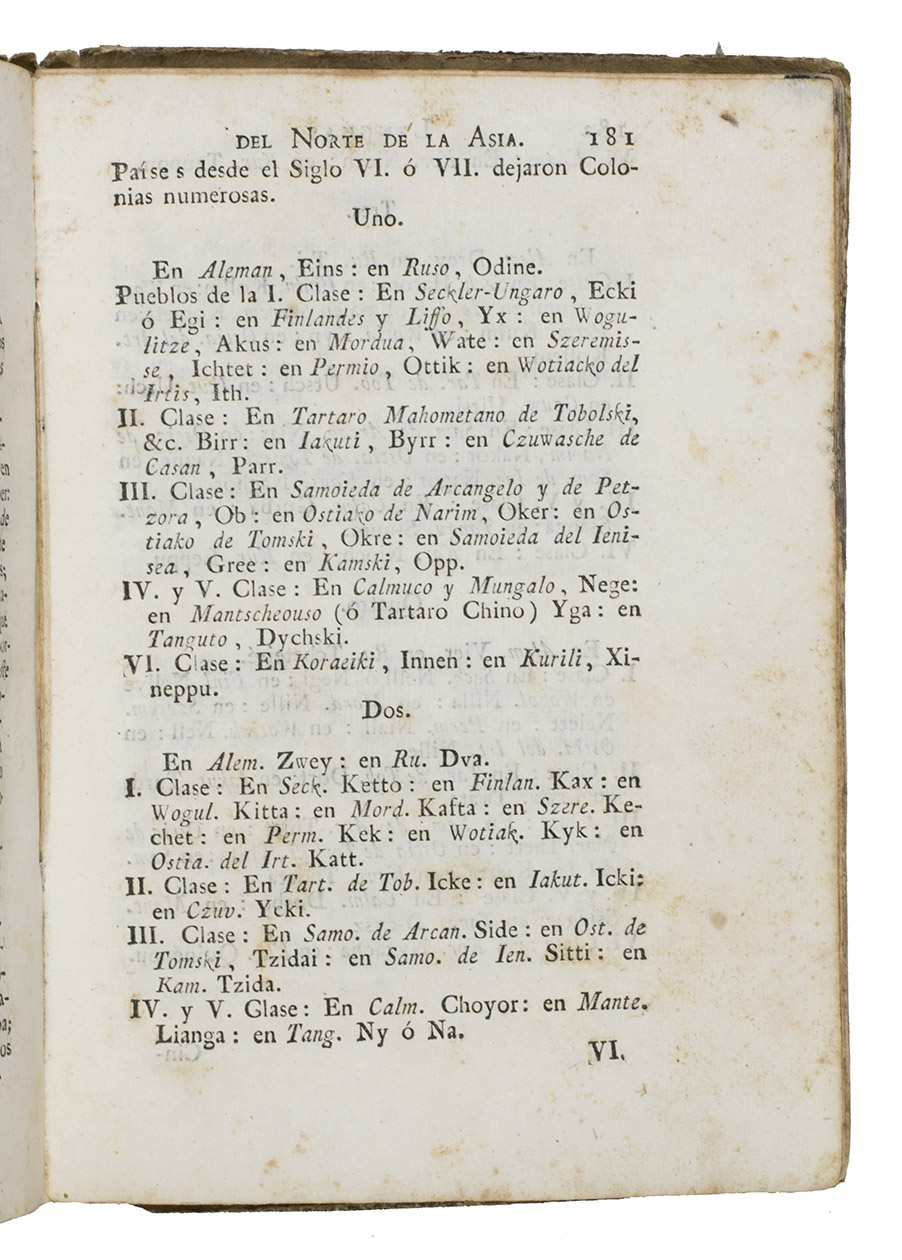 DEL NORTE DE LA ASIA. 181
Paíse s desde el Siglo VI. ó VII. dejaron Colo-
nias numerosas.
Uno.
En Aleman, Eins : en Ruso, Odine.
Pueblos de la I. Clase : En Seckler-Ungaro, Ecki
ó Egi : en Finlandes y Liffo, Yx : en Wogu-
litze, Akus : en Mordua, Wate : en Szeremis-
se, Ichtet : en Permio, Ottik : en Wotiacko del
Irtis, Ith.
II. Clase : En Tartaro Mahometano de Tobolski,
&c. Birr : en Iakuti, Byrr : en Czuwasche de
Casan, Parr.
III. Clase : En Samoieda de Arcangelo y de Pet-
zora, Ob : en Ostiako de Narim, Oker : en Os-
tiako de Tomski, Okre : en Samoieda del Ieni-
sea, Gree : en Kamski, Opp.
IV. y V. Clase : En Calmuco y Mungalo, Nege:
en Mantscheouso (ó Tartaro Chino) Yga : en
Tanguto, Dychski.
VI. Clase : En Koraeiki, Innen : en Kurili, Xi-
neppu.
Dos.
En Alem. Zwey : en Ru. Dva.
I. Clase : En Seck. Ketto : en Finlan. Kax : en
Wogul. Kitta : en Mord. Kafta : en Szere. Ke-
chet : en Perm. Kek : en Wotiak. Kyk : en
Ostia. del Irt. Katt.
II. Clase : En Tart. de Tob. Icke : en Iakut. Icki:
en Czuv. Ycki.
III. Clase : En Samo. de Arcan. Side : en Ost. de
Tomski, Tzidai : en Samo. de Ien. Sitti : en
Kam. Tzida.
IV. y V. Glase : En Calm. Choyor: en Mante.
Lianga : en Tang. Ny ó Na.
VI.